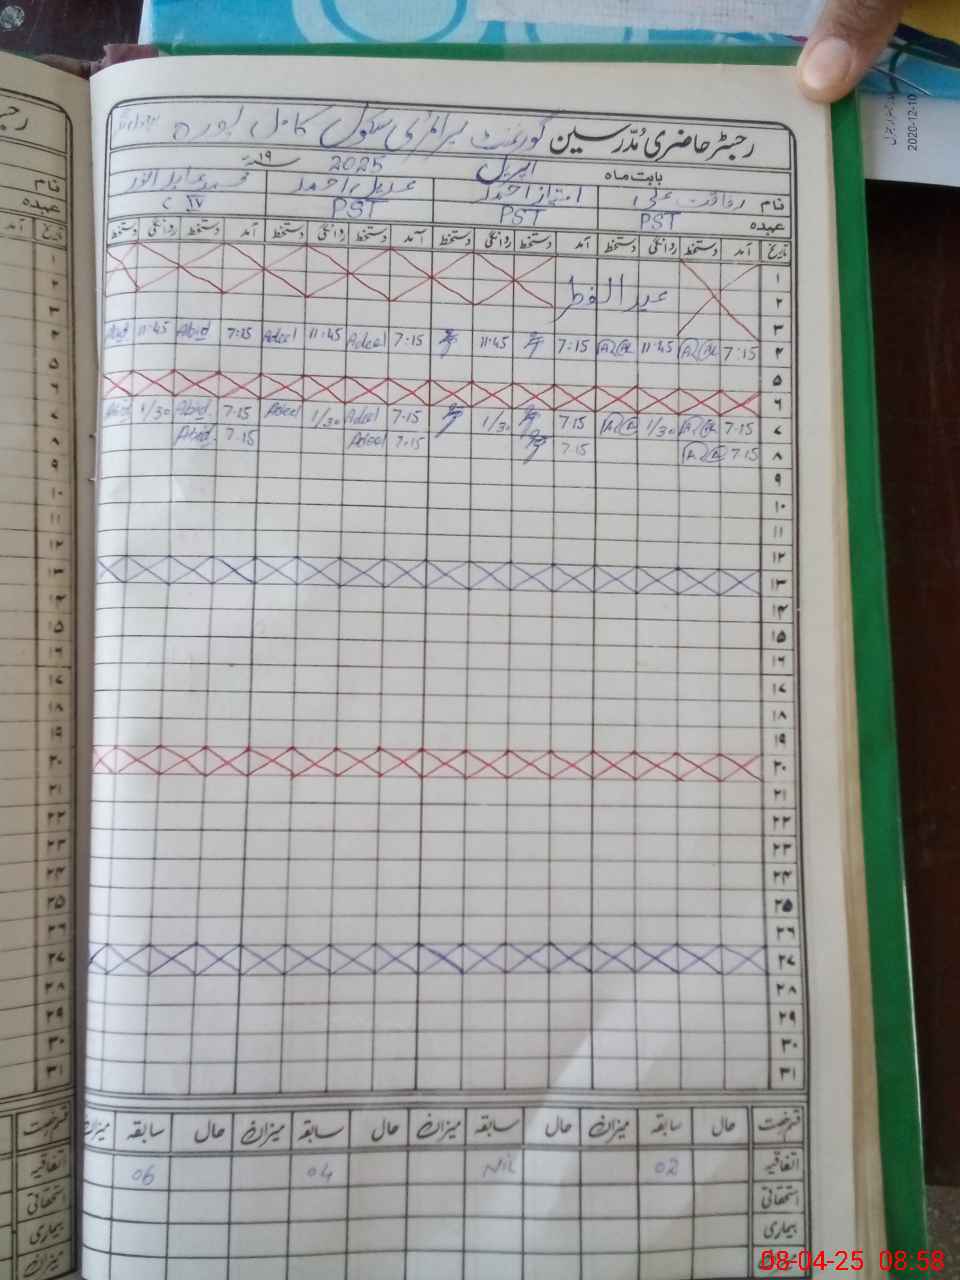 2020-12-10
رجسٹر حاضری مُدرسین گورنمنٹ پرائمری سکول کامل پورہ
بابت ماہ اپریل 2025 ۱۹ء
نام رفاقت علی امتیاز احمد عدیل احمد محمد عابد انور
عہدہ PST PST PST C IV
تاریخ آمد دستخط روانگی دستخط آمد دستخط روانگی دستخط آمد دستخط روانگی دستخط آمد دستخط روانگی دستخط
۱
۲ عید الفطر
۳
۴ 7:15 11:45 7:15 11:45 7:15 Adeel 11:45 Adeel 7:15 Abid 11:45 Abid
۵
۶
۷ 7:15 1/30 7:15 1/30 7:15 Adeel 1/30 Adeel 7:15 Abid 1/30 Abid
۸ 7:15 7:15 7:15 Adeel 7:15 Abid
۹
۱۰
۱۱
۱۲
۱۳
۱۴
۱۵
۱۶
۱۷
۱۸
۱۹
۲۰
۲۱
۲۲
۲۳
۲۴
۲۵
۲۶
۲۷
۲۸
۲۹
۳۰
۳۱
قسم رخصت حال سابقہ میزان حال سابقہ میزان حال سابقہ میزان حال سابقہ میزان
اتفاقیہ 02 Nil 04 06
استحقاقی
بیماری
میزان
08-04-25 08:58